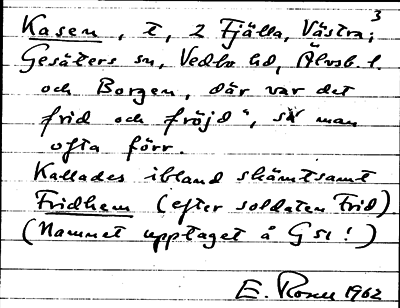 3
Kasen, t, 2 Fjälla, Västra;
Gesäters sn, Vedbo hd, Älvsb. l.
och Borgen, där var det
frid och fröjd", så man
ofta förr.
Kallades ibland skämtsamt
Fridhem (efter soldaten Frid).
(Namnet upptaget å G 51!)
E. Rosen 1962